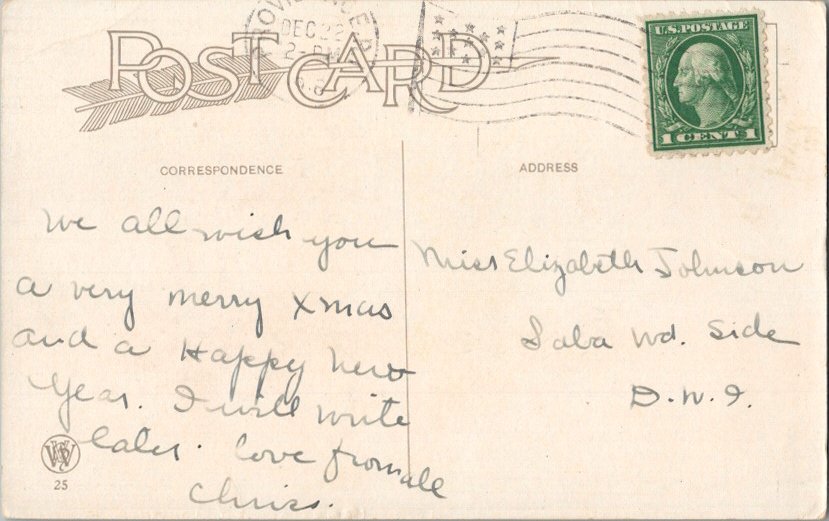 POST CARD
PROVIDENCE R.I.
DEC 22
2-PM
U.S. POSTAGE
1 CENT 1
CORRESPONDENCE
ADDRESS
We all wish you
a very merry Xmas
and a Happy New
Year. I will write
later. love from all
Chriss.
Miss Elizabeth Johnson
Saba Wd. Side
D.W.I.
25